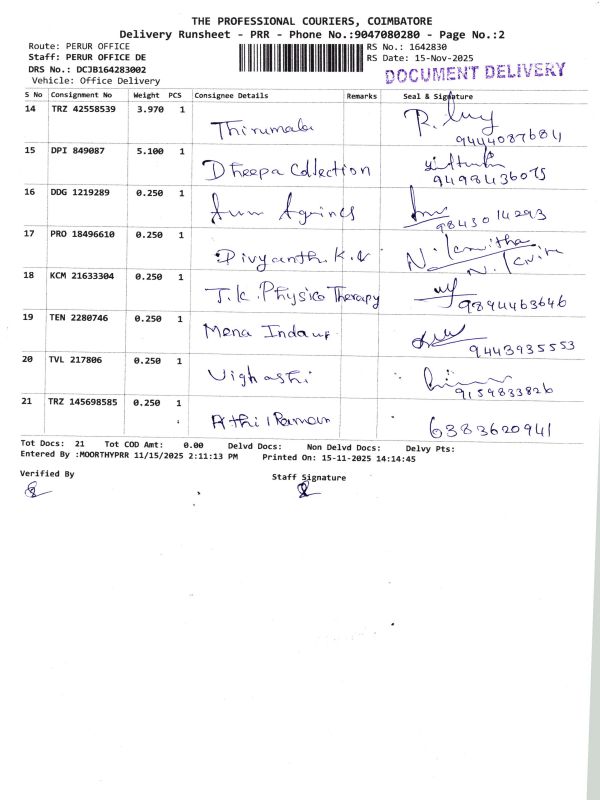 THE PROFESSIONAL COURIERS, COIMBATORE
Delivery Runsheet - PRR - Phone No.:9047080280 - Page No.:2
Route: PERUR OFFICE RS No.: 1642830
Staff: PERUR OFFICE DE RS Date: 15-Nov-2025
DRS No.: DCJB164283002 DOCUMENT DELIVERY
Vehicle: Office Delivery
S No Consignment No Weight PCS Consignee Details Remarks Seal & Signature
14 TRZ 42558539 3.970 1 Thirumala
15 DPI 849087 5.100 1 Dheepa Collection
9498436075
16 DDG 1219289 0.250 1
9843014293
17 PRO 18496610 0.250 1 Divyanth. K.V N. Kavitha
18 KCM 21633304 0.250 1 T.K. Physico Therapy
9894463646
19 TEN 2280746 0.250 1 Mena
9443935553
20 TVL 217806 0.250 1
9159833826
21 TRZ 145698585 0.250 1 6383620941
Tot Docs: 21 Tot COD Amt: 0.00 Delvd Docs: Non Delvd Docs: Delvy Pts:
Entered By :MOORTHYPRR 11/15/2025 2:11:13 PM Printed On: 15-11-2025 14:14:45
Verified By Staff Signature